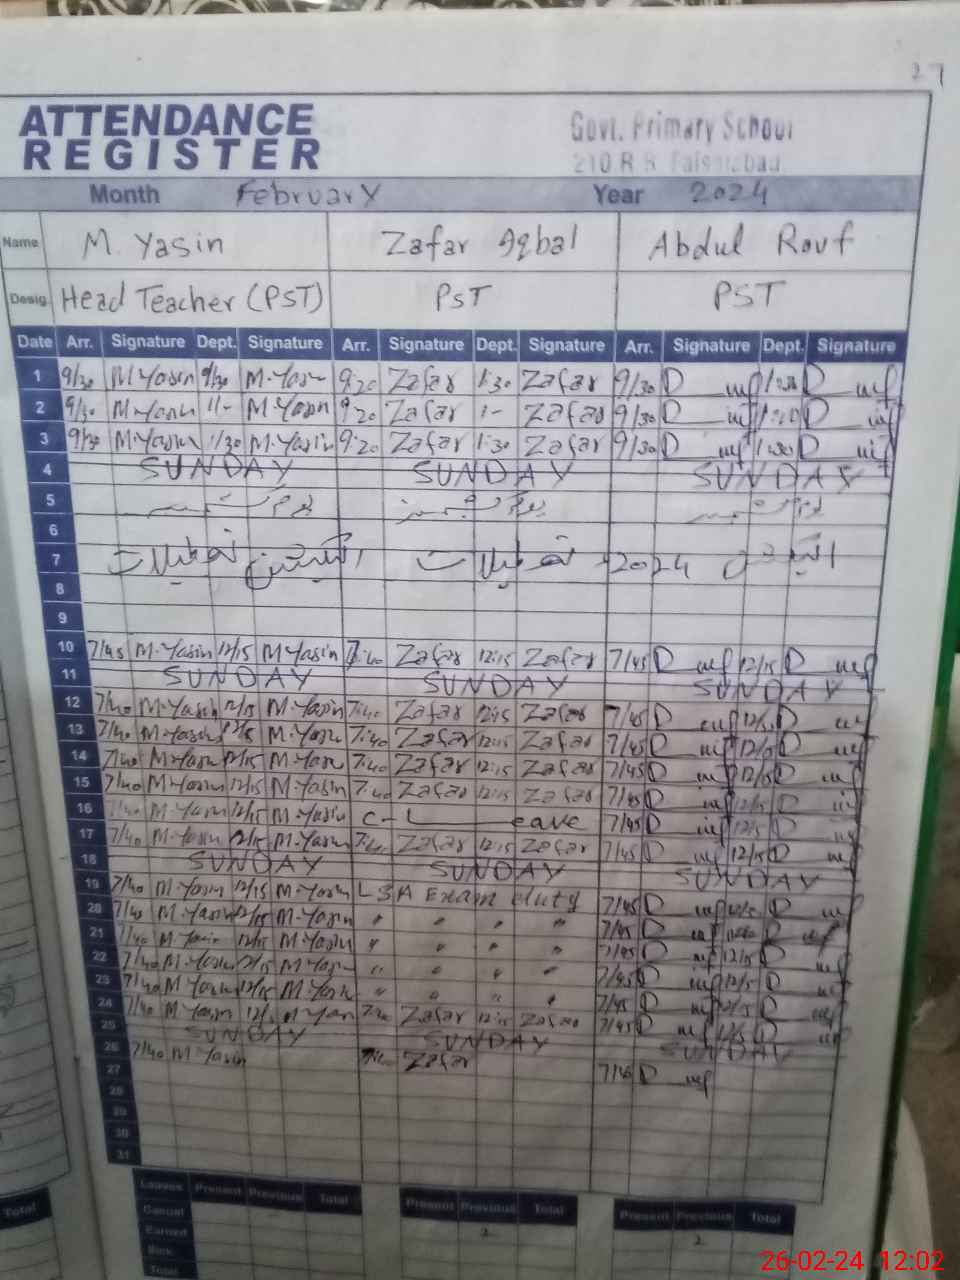 27
ATTENDANCE REGISTER
Govt. Primary School
210 R B Faisalabad
Month February Year 2024
Name M. Yasin Zafar Iqbal Abdul Rouf
Desig. Head Teacher (PST) PST PST
Date Arr. Signature Dept. Signature Arr. Signature Dept. Signature Arr. Signature Dept. Signature
1 9/30 M.Yasin 9/30 M.Yasin 9:20 Zafar 1:30 Zafar 9/30
2 9/30 M.Yasin 11- M.Yasin 9:20 Zafar 1- Zafar 9/30
3 9/30 M.Yasin 1/30 M.Yasin 9:20 Zafar 1:30 Zafar 9/30
4 SUNDAY SUNDAY SUNDAY
5
6
7 الیکشن تعطیلات تعطیلات 2024 الیکشن
8
9
10 7/45 M.Yasin 12/15 M.Yasin 7:40 Zafar 12:15 Zafar 7/45 12/15
11 SUNDAY SUNDAY SUNDAY
12 7/40 M.Yasin 12/15 M.Yasin 7:40 Zafar 12:15 Zafar 7/45 12/15
13 7/40 M.Yasin 12/15 M.Yasin 7:40 Zafar 12:15 Zafar 7/45 12/15
14 7/40 M.Yasin 12/15 M.Yasin 7:40 Zafar 12:15 Zafar 7/45 12/15
15 7/40 M.Yasin 12/15 M.Yasin 7:40 Zafar 12:15 Zafar 7/45 12/15
16 7/40 M.Yasin 12/15 M.Yasin C-Leave 7/45 12/15
17 7/40 M.Yasin 12/15 M.Yasin Zafar 12:15 Zafar 7/45 12/15
18 SUNDAY SUNDAY SUNDAY
19 7/40 M.Yasin 12/15 M.Yasin LSA Exam duty 7/45
20 7/40 M.Yasin 12/15 M.Yasin " " " 7/45
21 7/40 M.Yasin 12/15 M.Yasin " " " 7/45 12/15
22 7/40 M.Yasin 12/15 M.Yasin " " " 7/45 12/15
23 7/40 M.Yasin 12/15 M.Yasin " " " " 7/45 12/15
24 7/40 M.Yasin M.Yasin Zafar 12:15 Zafar 7/45
25 SUNDAY SUNDAY SUNDAY
26 7/40 M.Yasin Zafar 7/45
27
28
29
30
31
Leaves Present Previous Total Present Previous Total Present Previous Total
Casual
Earned 2 2
Sick
Total
Total
26-02-24 12:02